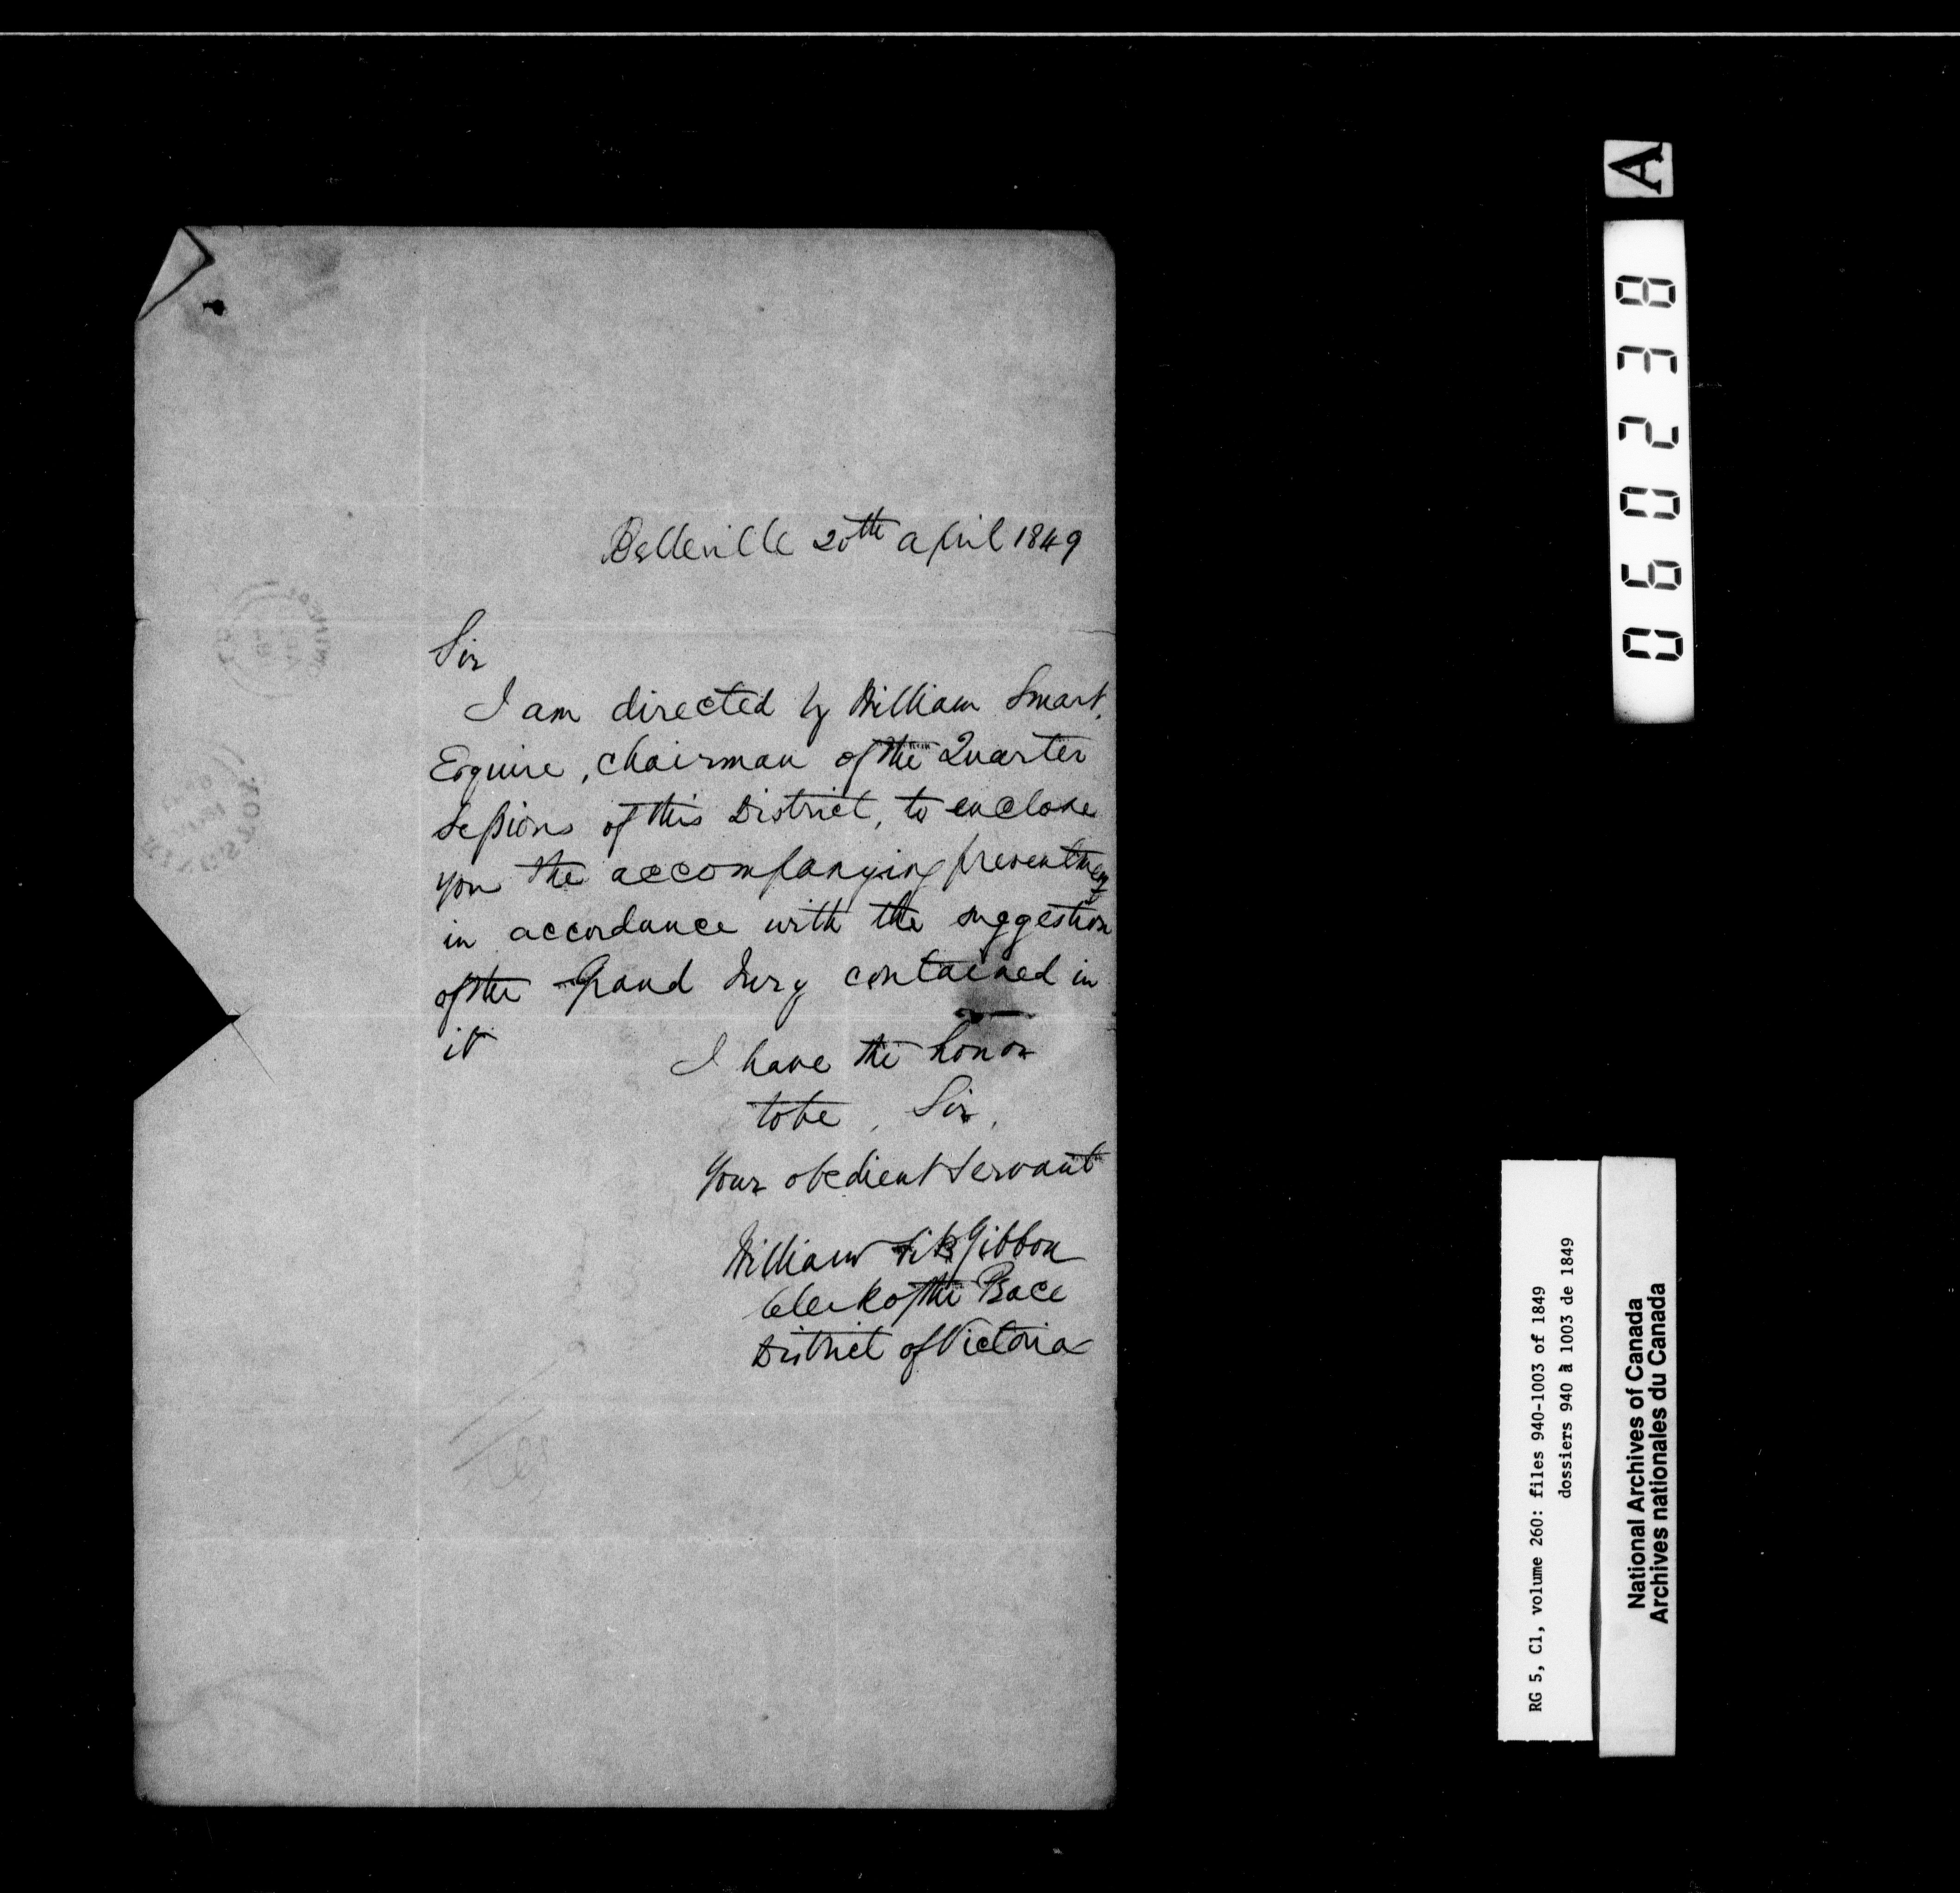 Belleville 20th April 1849
Sir
I am directed by William Smart,
Esquire, Chairman of the Quarter
Sessions of this District, to enclose
you the accompanying presentment
in accordance with the suggestion
of the Grand Jury contained in
it
I have the honor
to be, Sir,
Your obedient Servant
William FitzGibbon
Clerk of the Peace
District of Victoria
A
060238
RG 5, C1, volume 260: files 940-1003 of 1849
dossiers 940 à 1003 de 1849
National Archives of Canada
Archives nationales du Canada